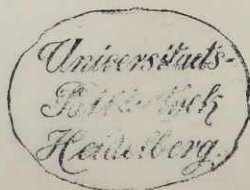 Universitäts-
Bibliothek
Heidelberg.